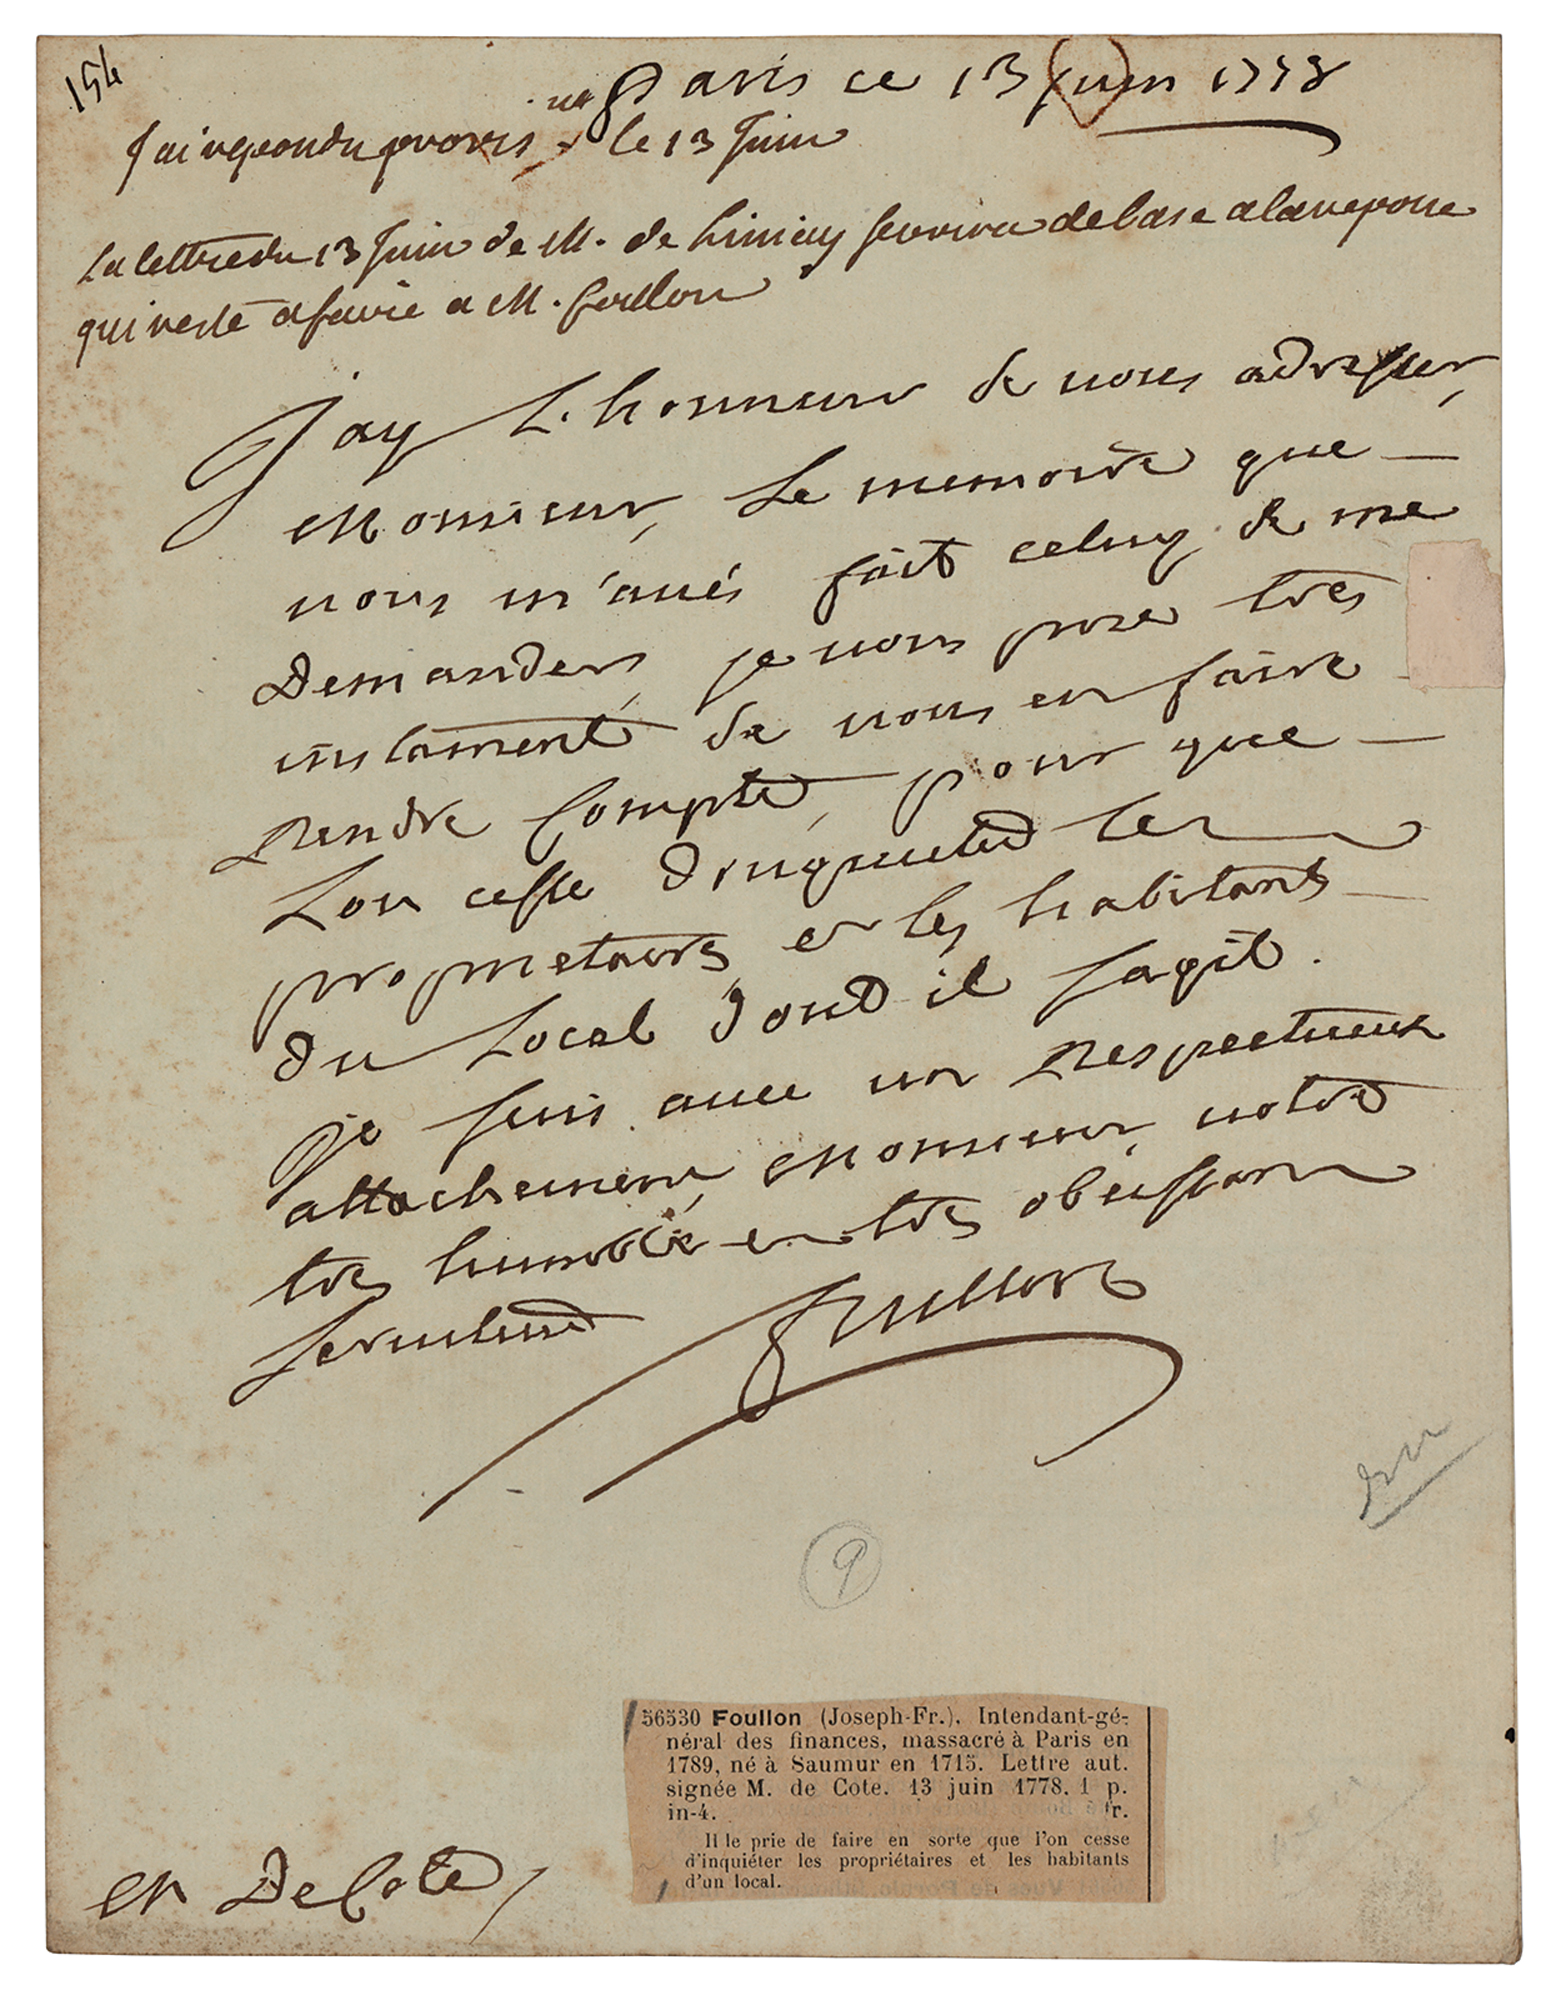 154
Paris ce 13 juin 1778
J'ai repondu le 13 Juin
La lettre du 13 Juin de M. de Limay servira de base a la reponse
qui reste a faire a M. foullon
J'ay L'honneur de vous adresser,
Monsieur, Le memoire que
vous m'avés fait celuy de me
Demander, je vous prie très
instament de vous en faire
Rendre Compte, pour que
Lon cesse dinquieter les
proprietaires et les habitants
du Local dont il sagit.
je suis avec un Respectueux
attachement, Monsieur, votre
très humble et très obeissant
serviteur
foullon
9
56530 Foullon (Joseph-Fr.), Intendant-gé-
néral des finances, massacré à Paris en
1789, né à Saumur en 1715. Lettre aut.
signée M. de Cote. 13 juin 1778. 1 p.
in-4. fr.
Il le prie de faire en sorte que l'on cesse
d'inquiéter les propriétaires et les habitants
d'un local.
M De Cote,